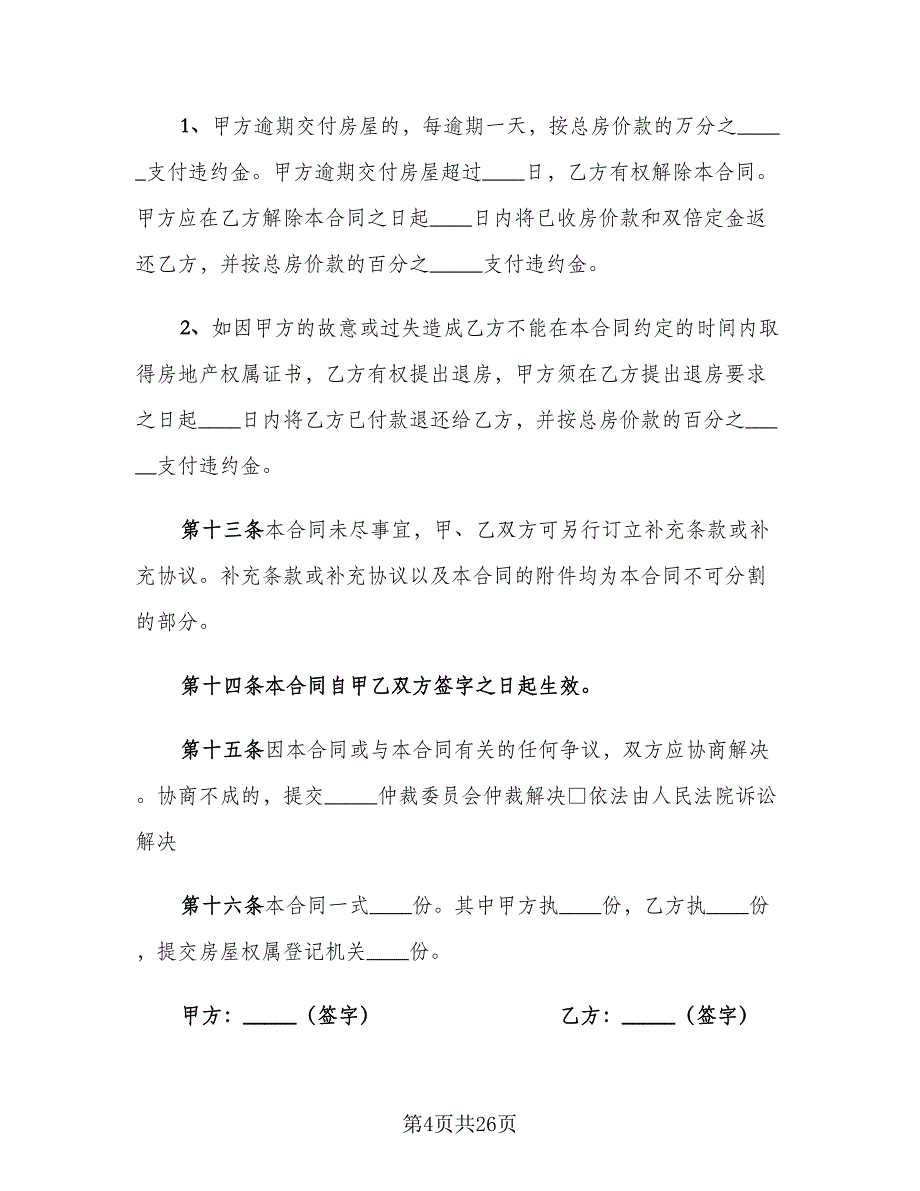 1、甲方逾期交付房屋的，每逾期一天，按总房价款的万分之____
_支付违约金。甲方逾期交付房屋超过____日，乙方有权解除本合同。
甲方应在乙方解除本合同之日起____日内将已收房价款和双倍定金返
还乙方，并按总房价款的百分之_____支付违约金。
2、如因甲方的故意或过失造成乙方不能在本合同约定的时间内取
得房地产权属证书，乙方有权提出退房，甲方须在乙方提出退房要求
之日起____日内将乙方已付款退还给乙方，并按总房价款的百分之___
__支付违约金。
第十三条本合同未尽事宜，甲、乙双方可另行订立补充条款或补
充协议。补充条款或补充协议以及本合同的附件均为本合同不可分割
的部分。
第十四条本合同自甲乙双方签字之日起生效。
第十五条因本合同或与本合同有关的任何争议，双方应协商解决
。协商不成的，提交_____仲裁委员会仲裁解决□依法由人民法院诉讼
解决
第十六条本合同一式____份。其中甲方执____份，乙方执____份
，提交房屋权属登记机关____份。
甲方：_____（签字） 乙方：_____（签字）
第4页共26页